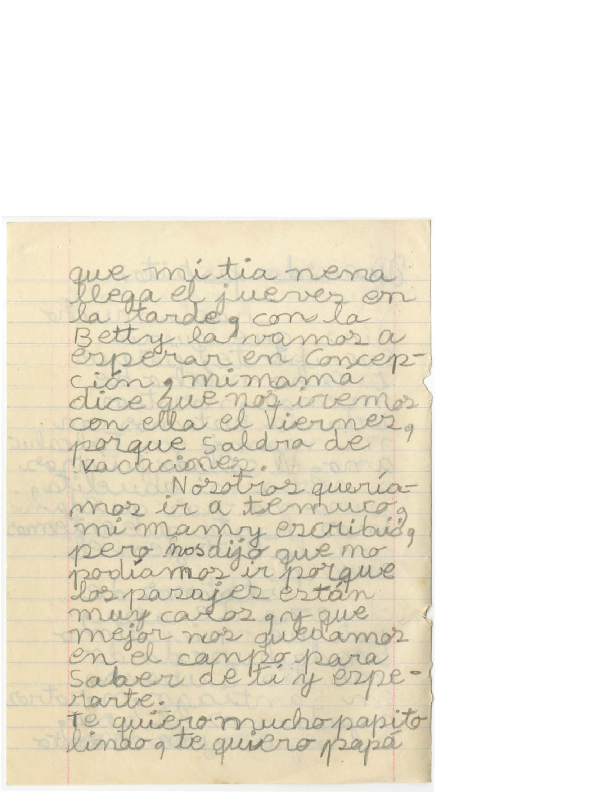 que mi tia nena
llega el jueves en
la tarde, con la
Betty la vamos a
esperar en Concep-
ción, mi mama
dice que nos iremos
con ella el Viernes,
porque Saldra de
vacaciones.
Nosotros quería-
mos ir a temuco,
mi mamy escribió,
pero nos dijo que no
podíamos ir porque
los pasajes están
muy caros, y que
mejor nos quedamos
en el campo para
Saber de ti y espe-
rarte.
Te quiero mucho papito
lindo, te quiero papá